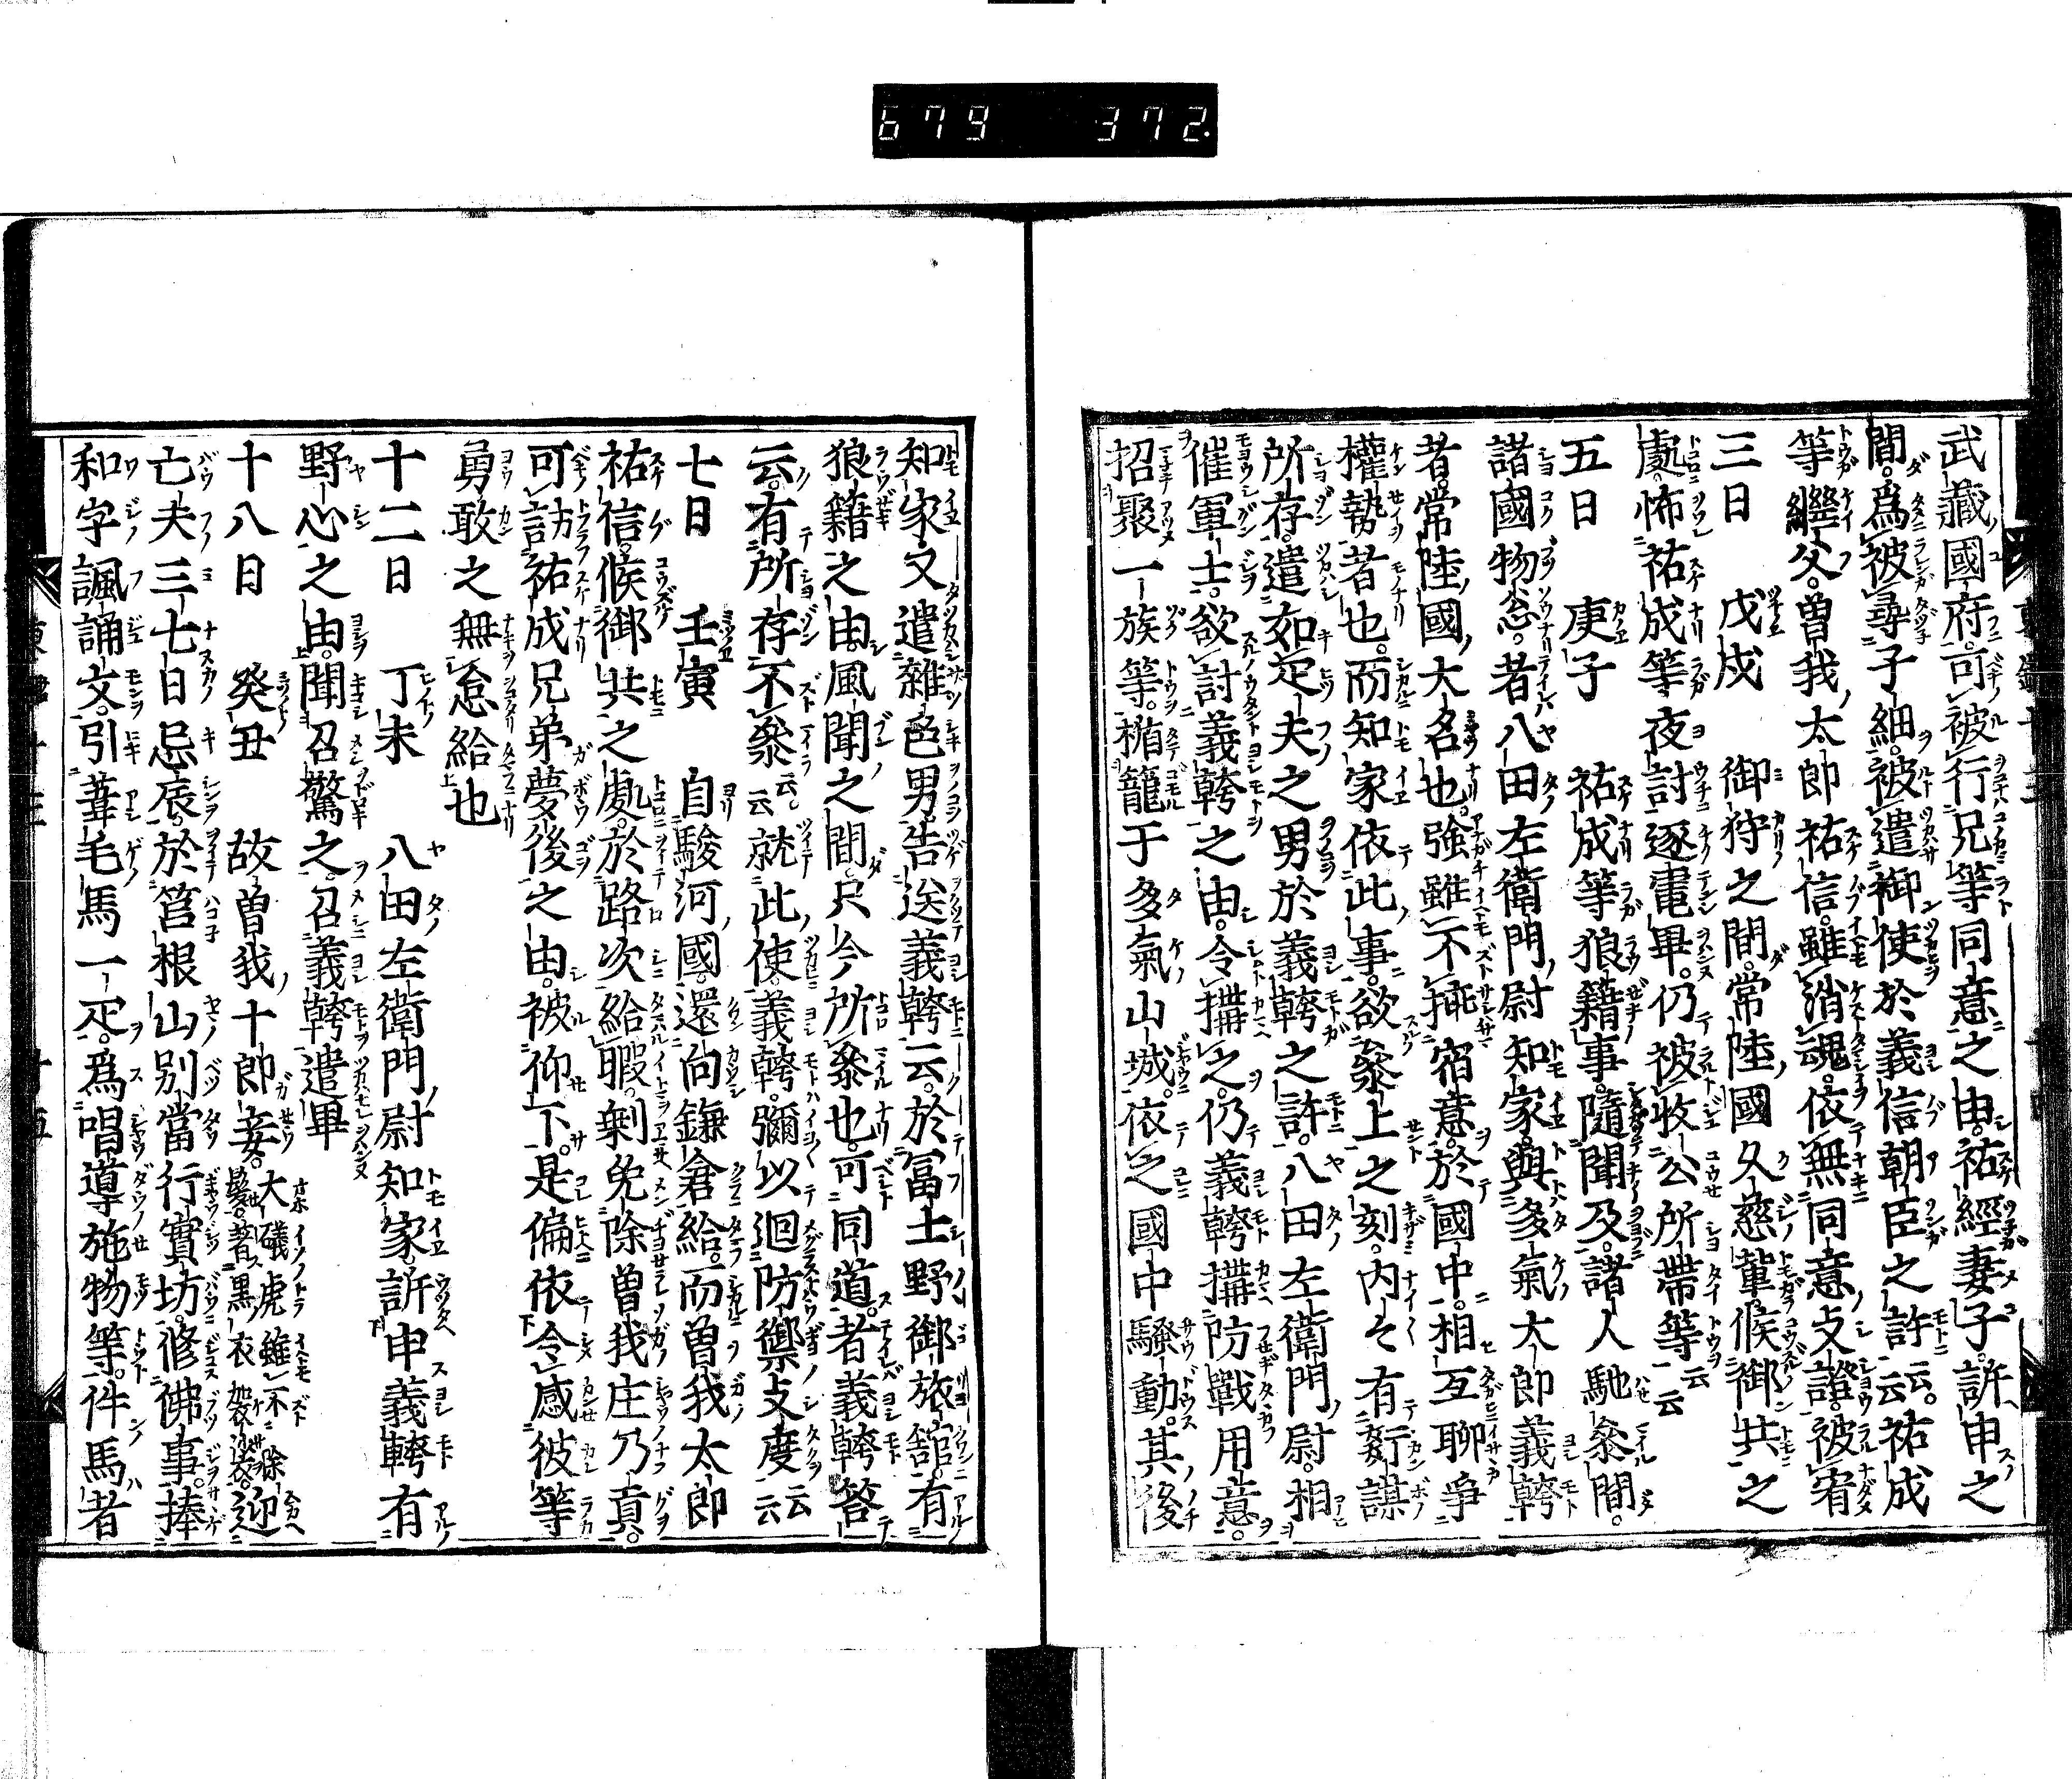 679 372.
武藏國府可被行兄等同意之由祐經妻子訴申之
間。爲被尋子細。被遣御使於義信朝臣之許云。祐成
等繼父。曽我太郎祐信。雖消魂。依無同意支證。被宥
三日 戊戌 御狩之間。常陸國久慈輩。候御共之
處。怖祐成等夜討逐電畢。仍被收公所帶等云云
五日 庚子 祐成等狼籍事。隨聞及。諸人馳參間。
諸國物忩。者八田左衛門尉知家與多氣大郎義幹
者。常陸國大名也。強雖不挿宿意。於國中。相互聊爭
權勢者也。而知家依此事。欲參上之刻。内々有姧謀
所存。遣如疋夫之男於義幹之許。八田左衛門尉。相
催軍士。欲討義幹之由。令搆之。仍義幹搆防戰用意。
招聚一族等。楯籠于多氣山城。依之國中騒動。其後
知家又遣雜色男。告送義幹云。於冨士野御旅舘。有
狼籍之由。風聞之間。只今所參也。可同道。者義幹答
云。有所存不參云云。就此使。義幹。彌以廻防禦支度云云
七日 壬寅 自駿河國。還向鎌倉給。而曽我太郎
祐信。候御共之處。於路次給暇。剰免除曽我庄乃貢。
可訪祐成兄弟夢後之由。被仰下。是偏依令感彼等
勇敢之無怠給也
十二日 丁未 八田左衛門尉知家。訴申義幹有
野心之由。聞召驚之。召義幹遣畢
十八日 癸丑 故曽我十郎妾。大礒虎雖不除髪。著黒衣袈裟。迎
亡夫三七日忌辰。於筥根山別當行實坊。修佛事。捧
和字諷誦文。引葦毛馬一疋。爲唱導施物等。件馬者